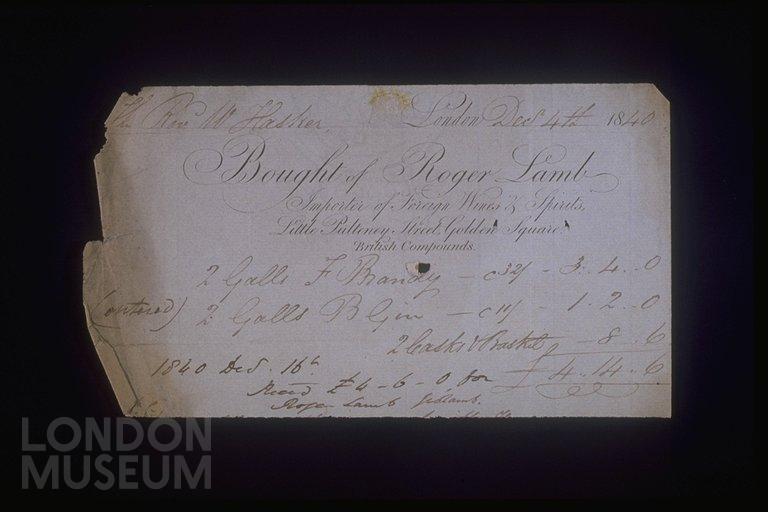 The Revd W Hasker, London Decr 4th 1840
Bought of Roger Lamb
Importer of Foreign Wines & Spirits,
Little Pulteney Street, Golden Square.
British Compounds.
2 Galls F Brandy - 32/ - 3 . 4 . . 0
(entered) 2 Galls B Gin - 11/ - 1 . 2 . . 0
2 Casks & Basket - 8 . 6
1840 Decr 16th £ 4 . 14 . . 6
Recd £4 - 6 - 0 for
Roger Lamb
LONDON
MUSEUM